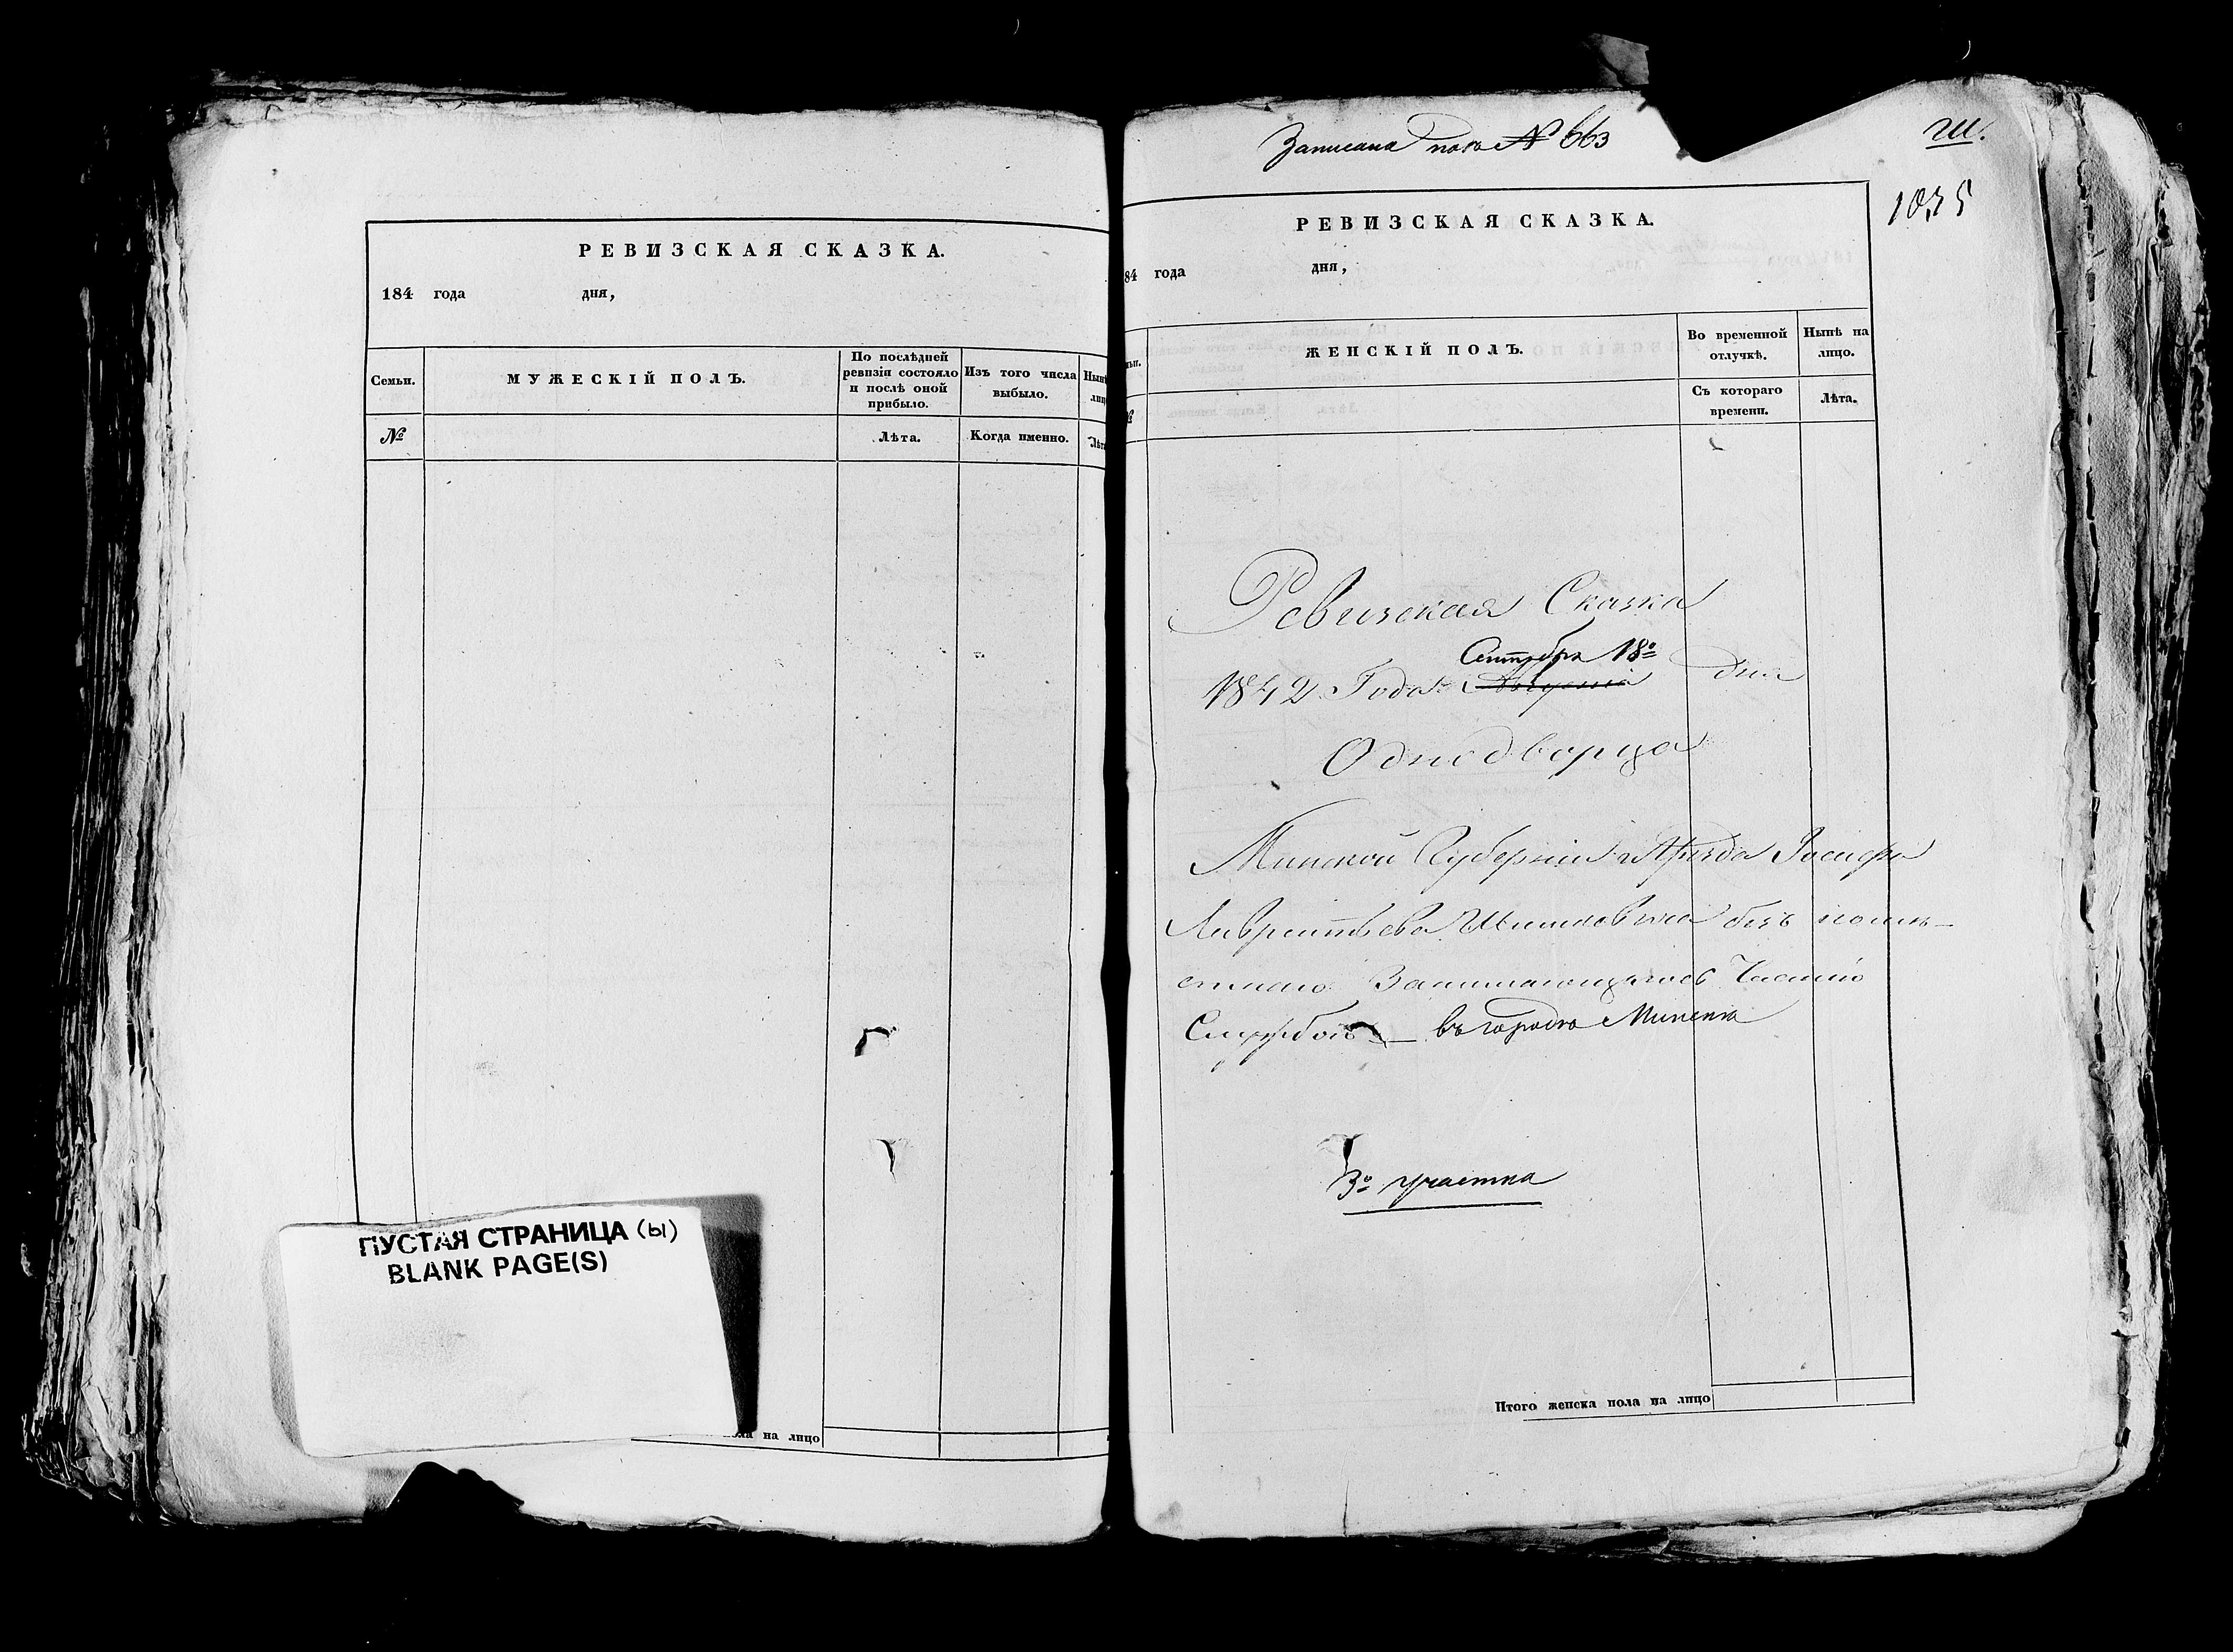 РЕВИЗСКАЯ СКАЗКА.
184 года дня,
Семьи.
МУЖЕСКІЙ ПОЛЪ.
По послѣдней ревизіи состояло и послѣ оной прибыло.
Изъ того числа выбыло.
№
Лѣта.
Когда именно.
ПУСТАЯ СТРАНИЦА (Ы)
BLANK PAGE(S)
на лицо
Записана подъ № 663
Ш.
РЕВИЗСКАЯ СКАЗКА.
84 года дня,
ЖЕНСКІЙ ПОЛЪ.
Во временной отлучкѣ.
Нынѣ на лицо.
Съ котораго времени.
Лѣта.
Ревизская Сказка
Сентября 18º
1842 Года Августа дня
Однодворца
Минской Губерніи и Уѣзда
Лаврентьева безъ помѣ-
стнаго Занимающагося Частною
Службою въ городѣ Минскѣ
3º участка
Итого женска пола на лицо